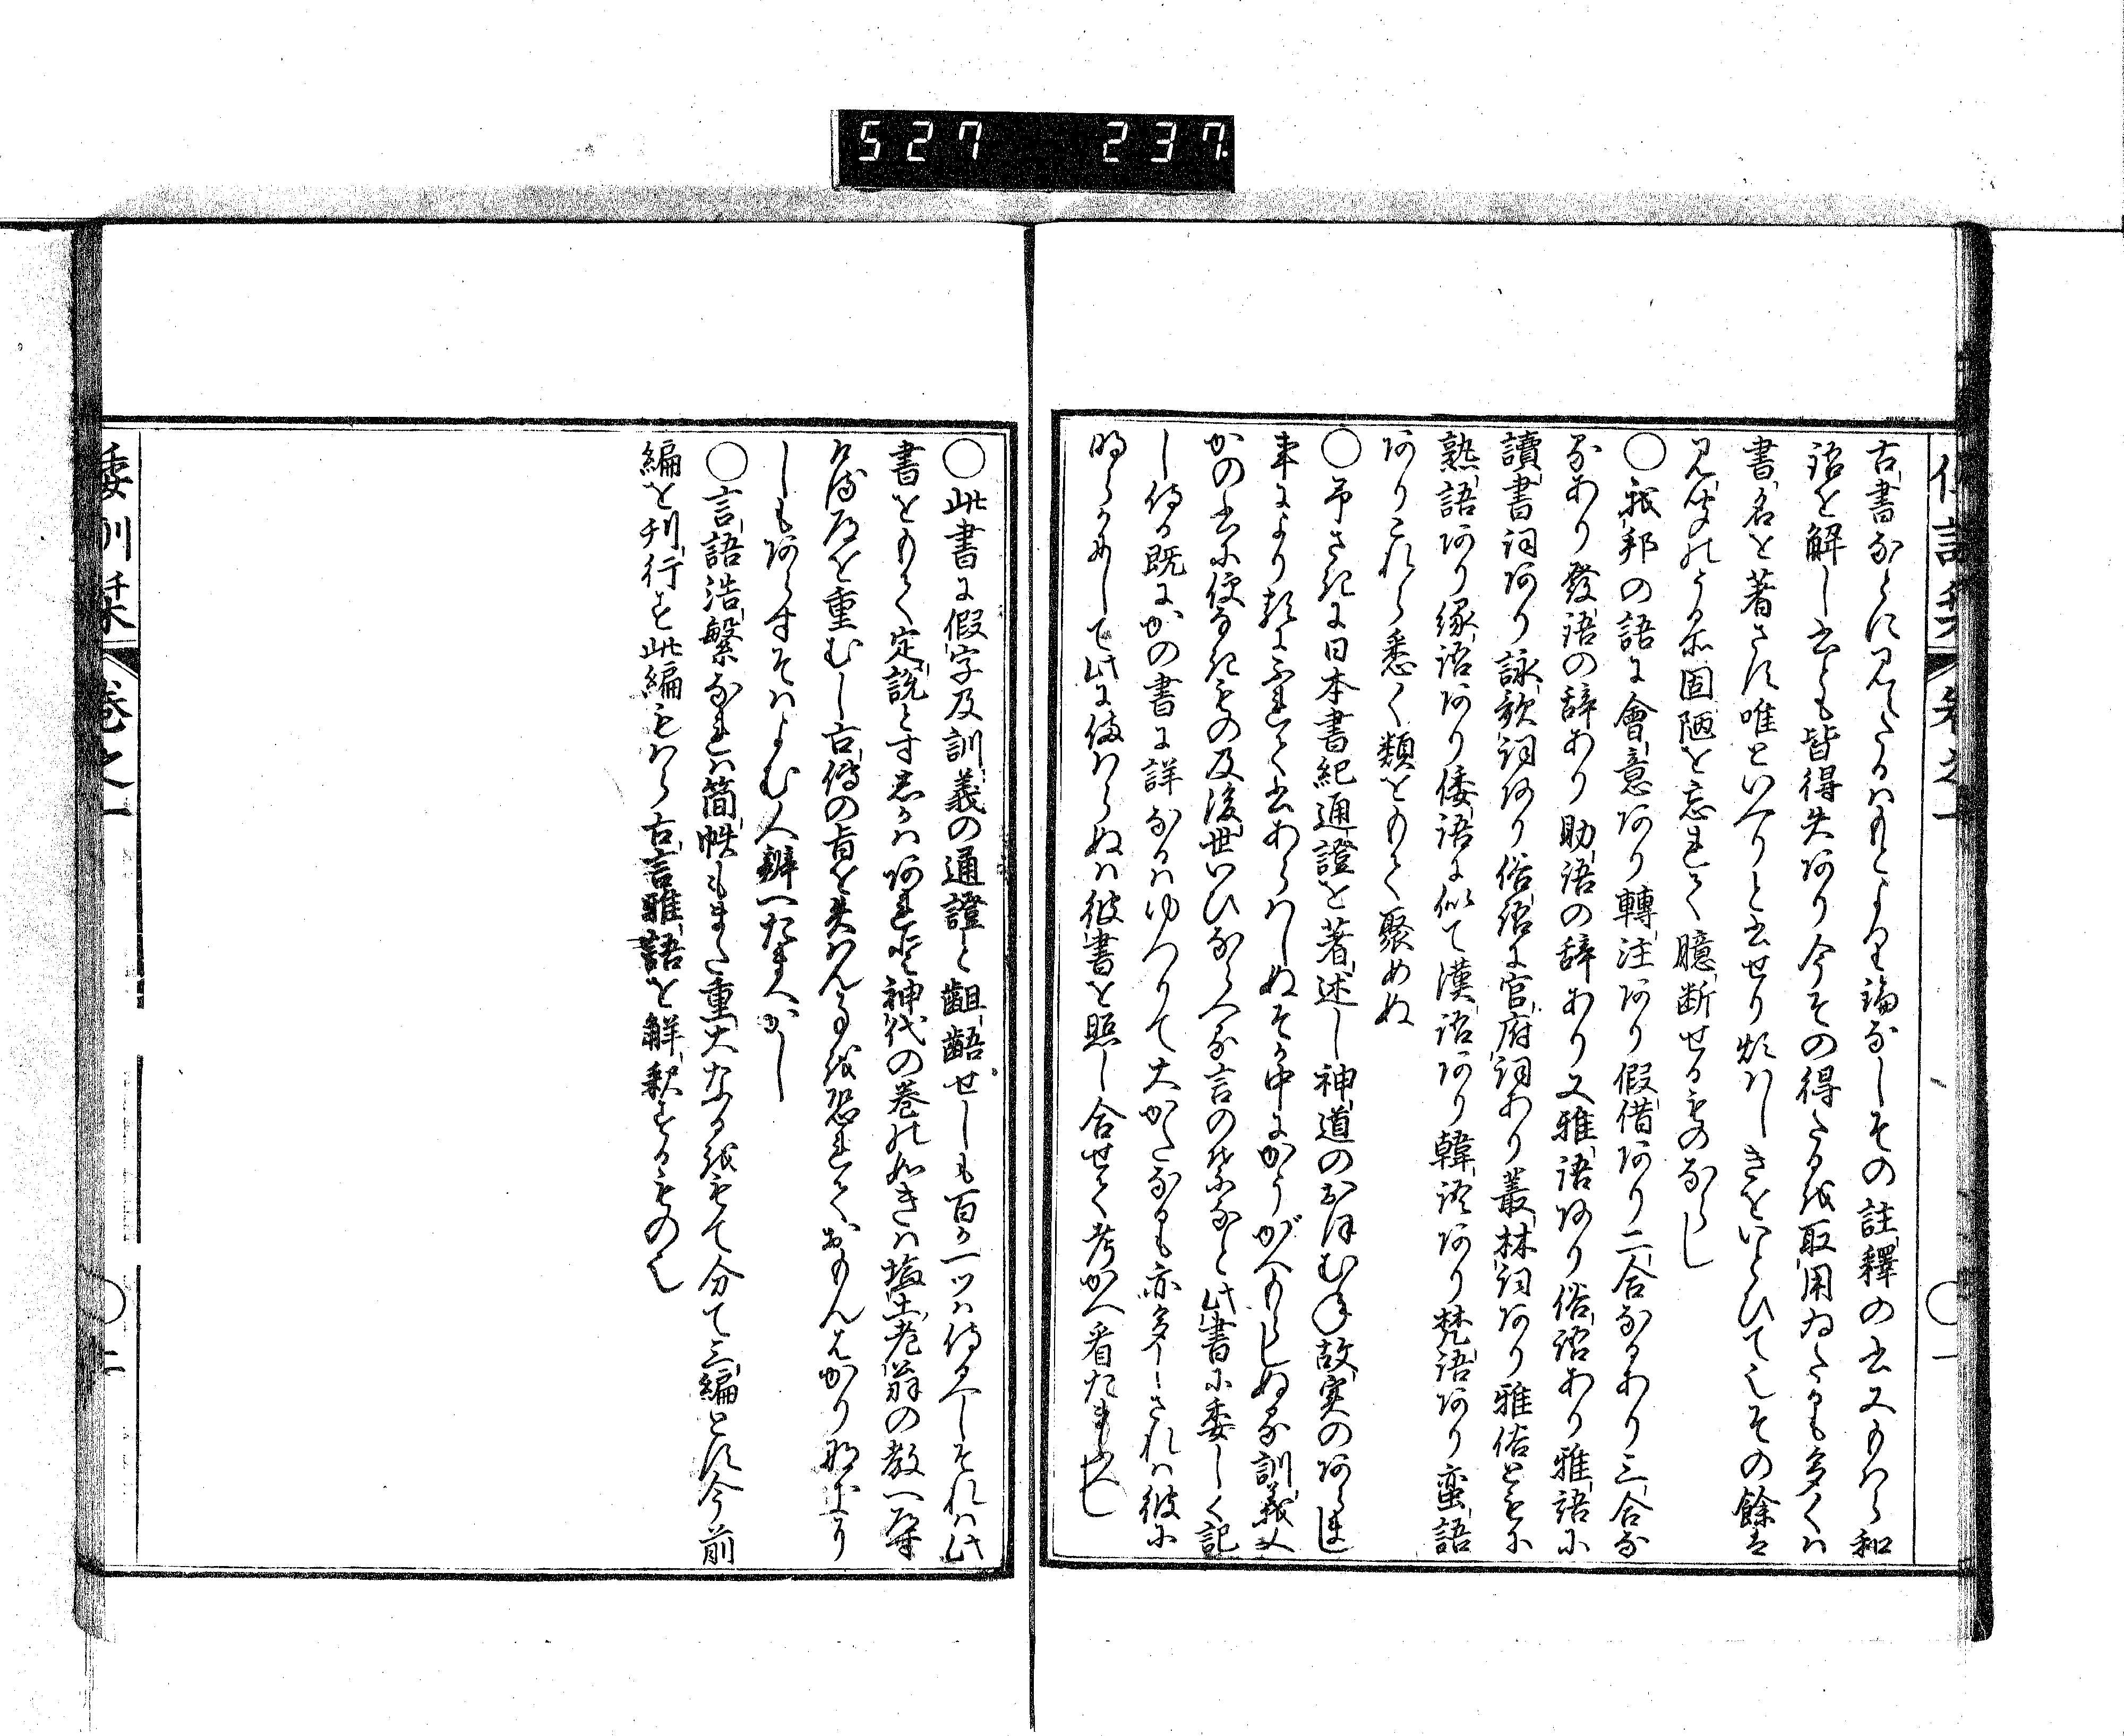 527 237
古書なとに見えたるハもとより論なしその註釋の書又もはら和
語を解し書とも皆得失あり今その得たるを取用ゐたるも多くハ
書名を著さす唯といへりと書せり煩ハしきをいとひて也その餘は
見聞のうる所固陋を忘れて臆断せるものならし
○我邦の語に會意あり轉注あり假借あり二合なるあり三合な
るあり發語の辞あり助語の辞あり又雅語あり俗語あり雅語に
讀書詞あり詠歌詞あり俗語に官府詞あり叢林詞あり雅俗ともに
熟語あり縁語あり倭語に似て漢語あり韓語あり梵語あり蛮語
ありこれら悉く類をもて聚めぬ
○予さきに日本書紀通證を著述し神道のおほむね故実のあらまし
事により類にふれて書あらハしぬその中にかうがへもらしぬる訓義又
かの書に便なきもの及後世いひならへる言の葉なと此書に委しく記
し侍る既にかの書に詳なるハゆつりて大かたなるも亦多しされハ彼に
明らめして此に備ハらぬハ彼書を照し合せて考かへ看たまふへし
○此書に假字及訓義の通證と齟齬せしも百か一ツハ侍るへしそれハ此
書をもて定説とす然るハあれと神代の巻の如きハ塩土老翁の教へ
を重むし古傳の旨を失はん事を恐れて
しもあらすそハよむ人辨へたまへかし
○言語浩繁なれハ簡帙もまた重大なるをもて分て三編とす今前
編を刊行す此編もハら古言雅語を解釈するもの也
倭訓栞 巻之一 ○一
倭訓栞 巻之一 ○二